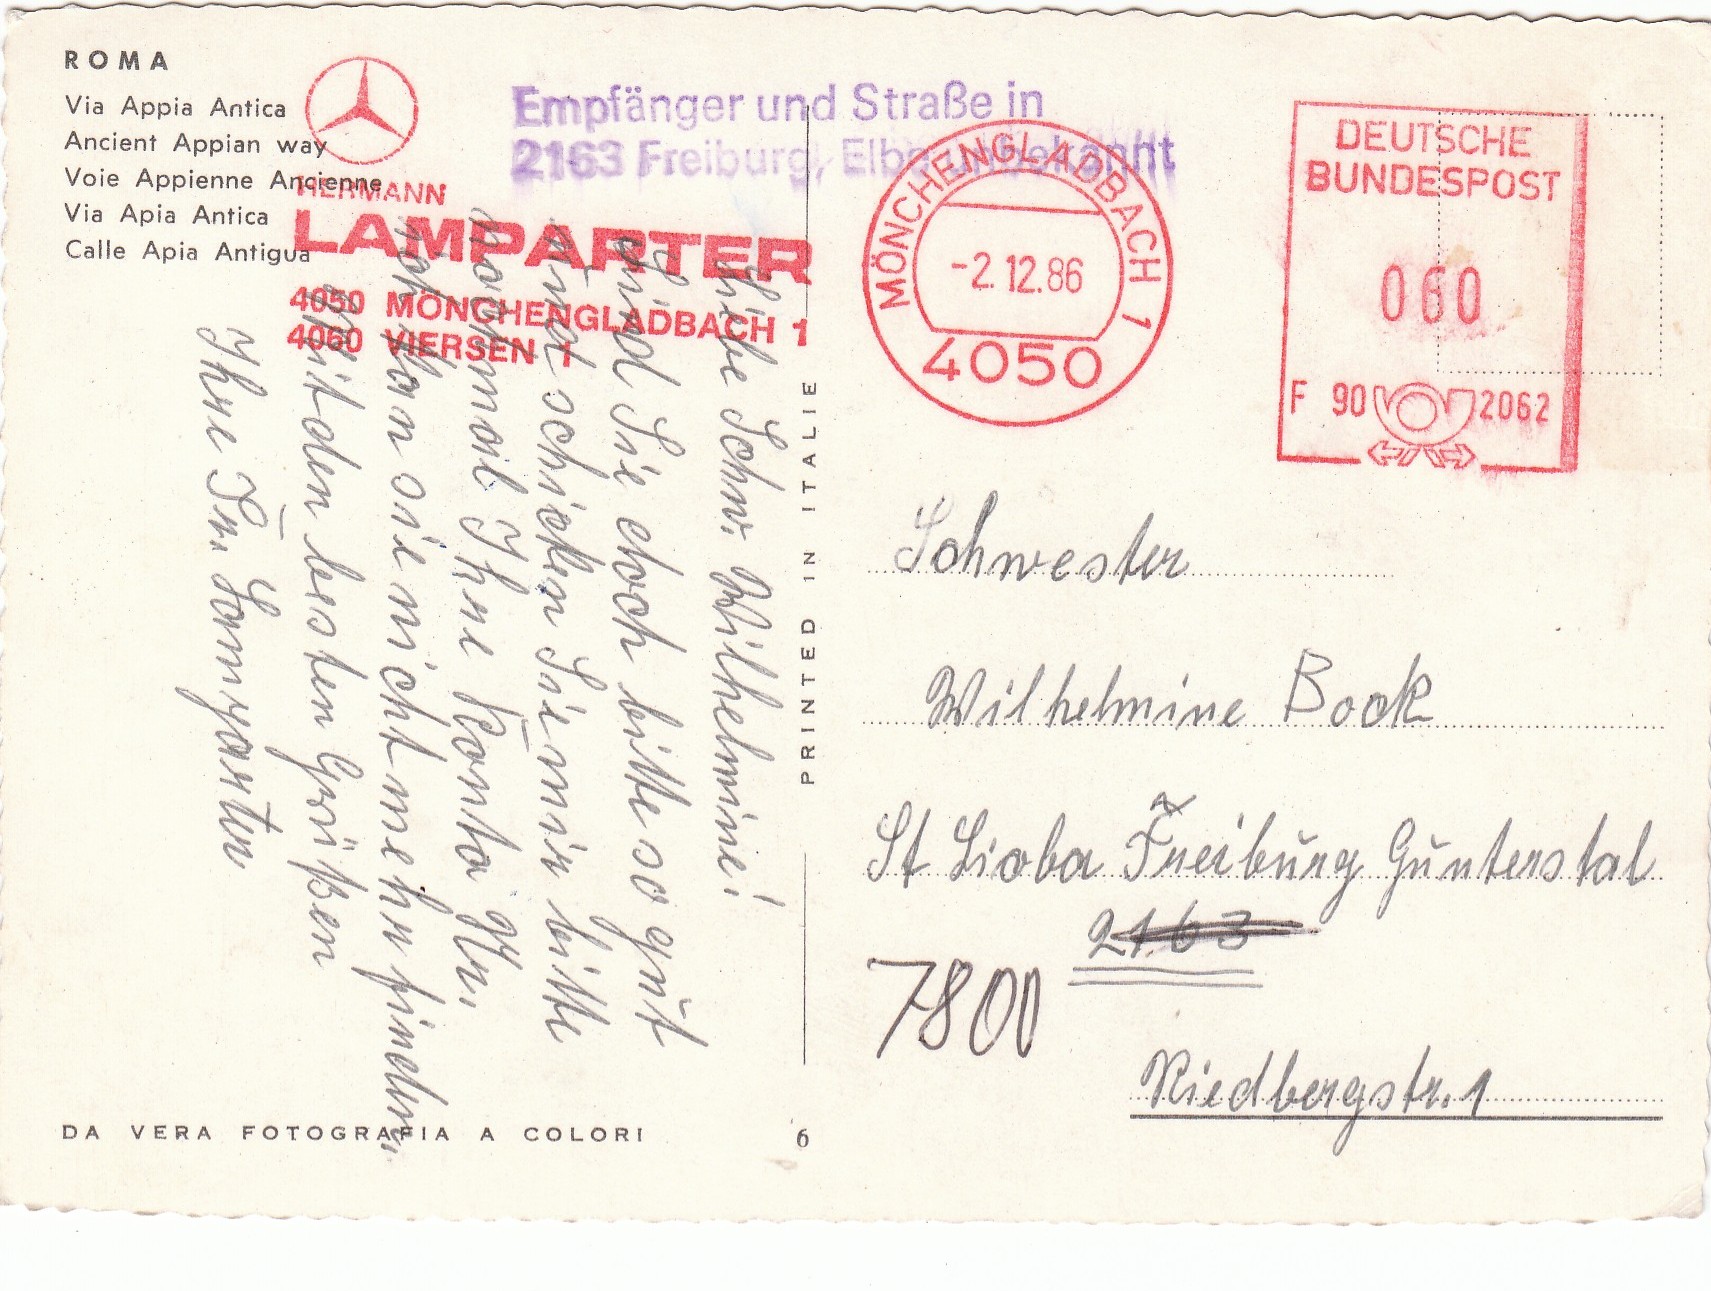 ROMA
Via Appia Antica
Ancient Appian way
Voie Appienne Ancienne
Via Apia Antica
Calle Apia Antigua
HERMANN
LAMPARTER
4050 MÖNCHENGLADBACH 1
4060 VIERSEN 1
Empfänger und Straße in
2163 Freiburg, Elbe unbekannt
MÖNCHENGLADBACH 1
-2.12.86
4050
DEUTSCHE
BUNDESPOST
060
F 90 2062
Liebe Schw. Wilhelmine!
Sind Sie doch bitte so gut
und schicken Sie mir bitte
nochmal Ihre Konto Nr.
ich kan sie nicht mehr finden.
Mit den besten Grüßen
Ihre Fr. Lamparter
PRINTED IN ITALIE
Schwester
Wilhelmine Bock
St Lioba Freiburg Günterstal
2163
7800
Riedbergstr. 1
DA VERA FOTOGRAFIA A COLORI
6